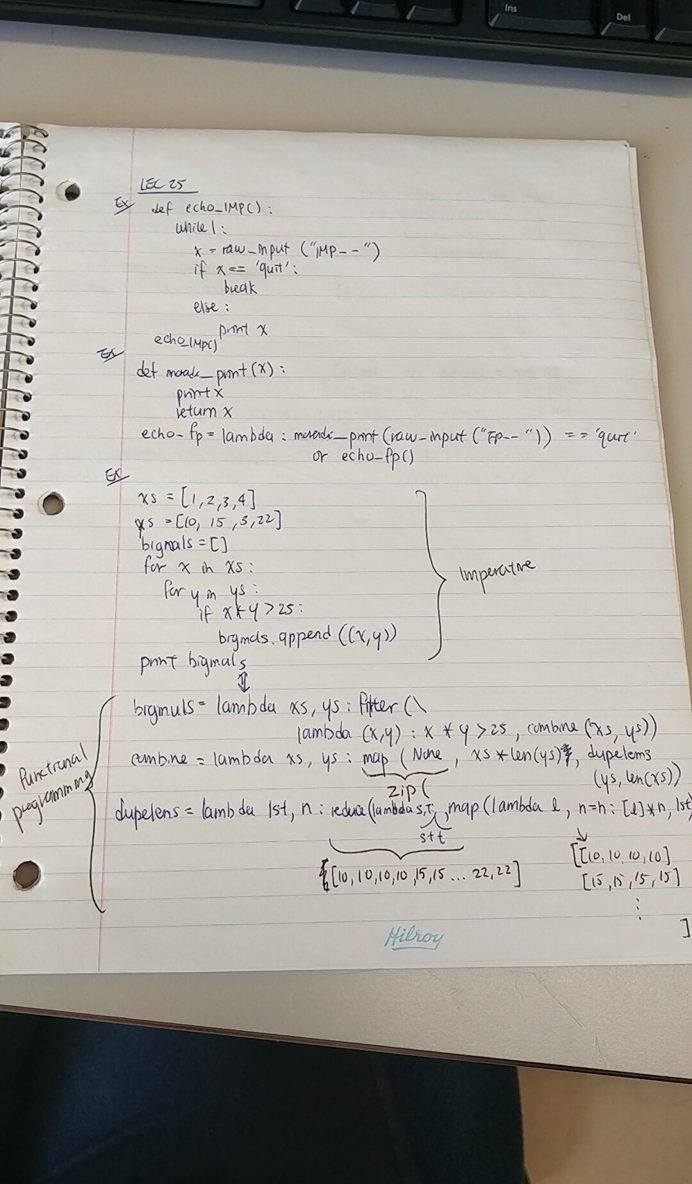 Ins
Del
LEC 25
Ex def echo_IMP():
while 1:
x = raw_input ("IMP--")
if x == 'quit':
break
else:
print x
echo_IMP()
Ex
def monadic_print(x):
print x
return x
echo_fp = lambda : monadic_print(raw_input("FP--")) == 'quit'
or echo_fp()
Ex
xs = [1,2,3,4]
ys = [10, 15, 3, 22]
bigmuls = []
for x in xs:
for y in ys:
if x*y > 25:
bigmuls.append((x,y))
print bigmuls
Imperative
bigmuls = lambda xs, ys : filter(\
lambda (x,y) : x * y > 25, combine (xs, ys))
combine = lambda xs, ys : map (None, xs*len(ys), dupelems
zip(
(ys, len(xs))
Functional
programming
dupelems = lambda lst, n : reduce(lambda s,t, map(lambda l, n=n: [l]*n, lst)
s+t
[10,10,10,10,15,15 ... 22,22]
[[10,10,10,10]
[15,15,15,15]
⋮
]
Hilroy